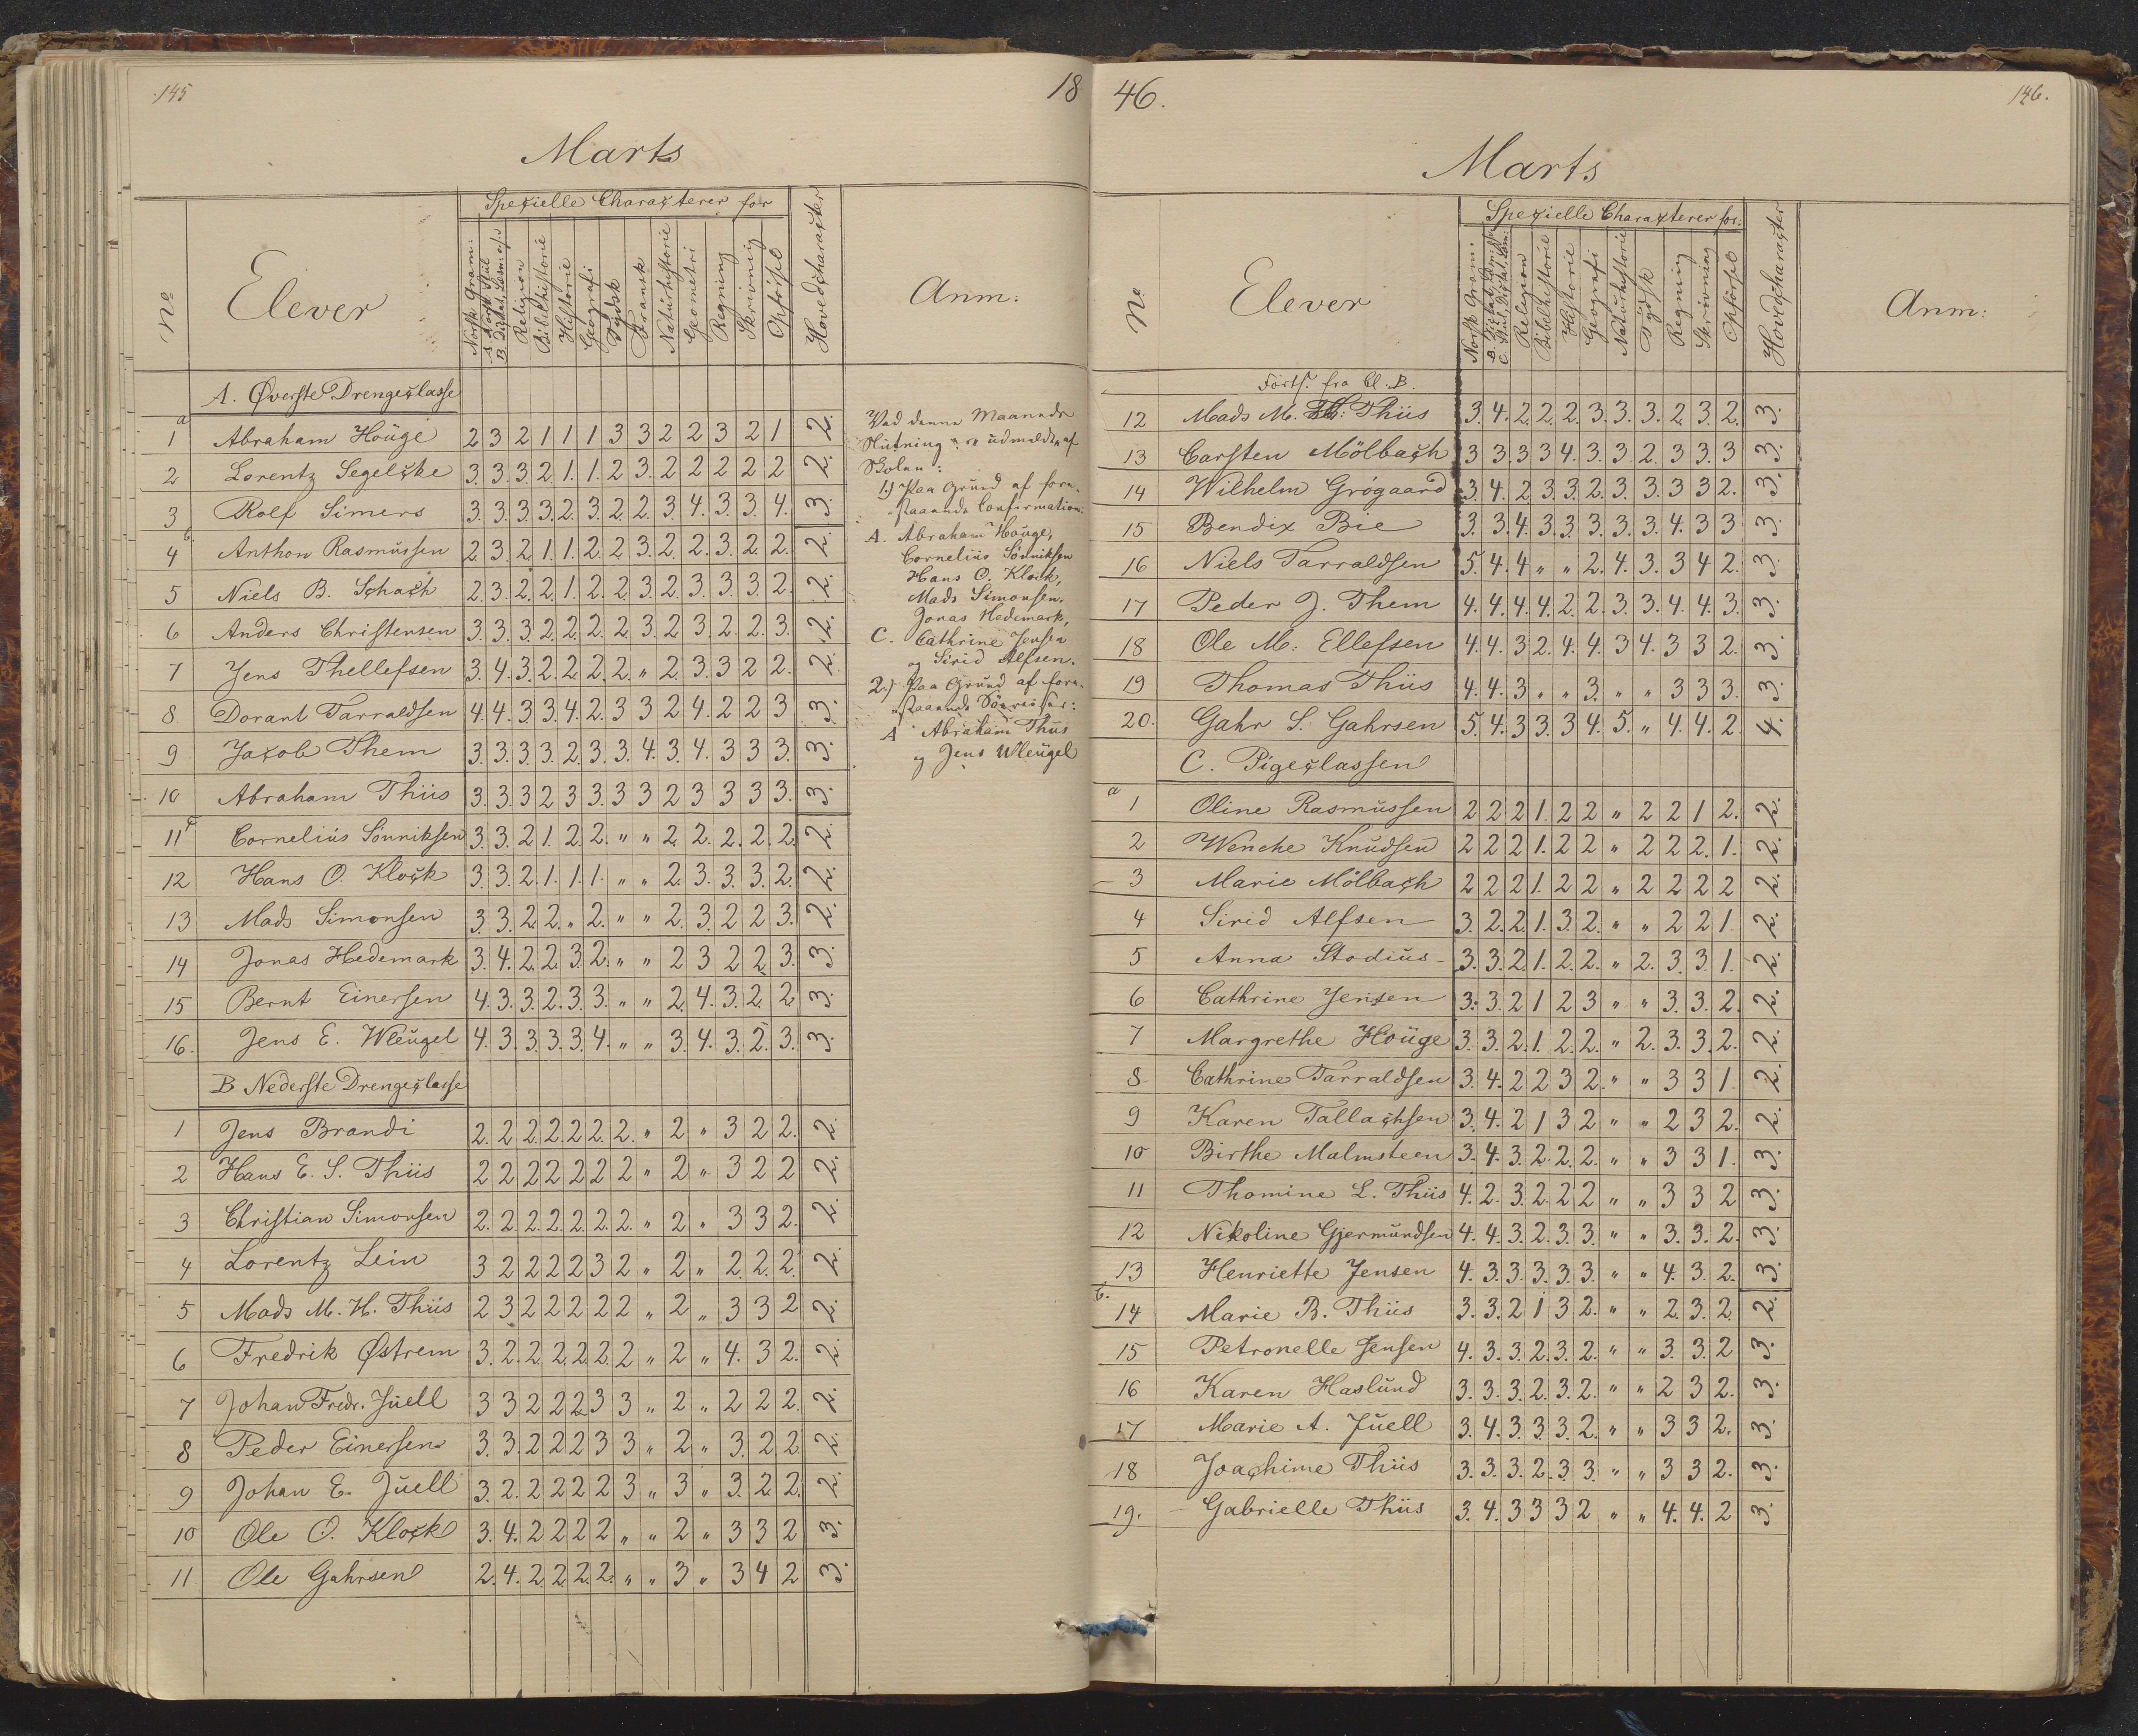 145
18
Marts
No
Elever
Spezielle Characterer for
Norsk Gram:
A Norsk Stiil
B Diktat, Læsn: o.s.v
Religion
Bibelhistorie
Historie
Geografi
Tydsk
Fransk
Naturhistorie
Geometri
Regning
Skrivning
Opførsel
Hovedcharacter
Anm:
A. Øverste Drengeclasse
a
1 Abraham Houge 2 3 2 1 1 1 3 3 2 2 3 2 1 2.
2 Lorentz Segelcke 3. 3. 3. 2. 1. 1. 2 3. 2 2 2 2 2 2.
3 Rolf Simers 3. 3. 3. 3. 2. 3. 2. 2. 3. 4. 3. 3. 4. 3.
b.
4 Anthon Rasmussen 2. 3. 2. 1. 1. 2. 2. 3. 2. 2. 3. 2. 2. 2.
5 Niels B. Schach 2. 3. 2. 2. 1. 2. 2. 3. 2. 3. 3. 3. 2. 2.
6 Anders Christensen 3. 3. 3. 2. 2. 2. 2. 3. 2. 3. 2. 2. 3. 2.
7 Jens Thellefsen 3. 4. 3. 2. 2. 2. 2. " 2. 3. 3 2 2. 2.
8 Dorant Tarraldsen 4. 4. 3. 3. 4. 2. 3 3 2 4. 2 2 3 3.
9 Jacob Them 3. 3. 3. 3. 2. 3. 3. 4. 3. 4. 3 3 3. 3.
10 Abraham Thiis 3. 3. 3 2 3 3. 3 3 2 3 3 3 3. 3.
c
11 Cornelius Sönniksen 3. 3. 2 1. 2. 2. " " 2. 2. 2. 2. 2. 2.
12 Hans O. Klock 3. 3. 2. 1. 1. 1. " " 2. 3. 3. 3. 2. 2.
13 Mads Simonsen 3. 3. 2. 2. " 2. " " 2. 3. 2 2 3. 2.
14 Jonas Hedemark 3. 4. 2. 2. 3. 2. " " 2 3 2 2 3. 3.
15 Bernt Einersen 4. 3. 3. 2. 3. 3. " " 2. 4. 3. 2. 2 3.
16. Jens E. Wleugel 4. 3. 3. 3. 3. 4. " " 3. 4. 3. 2. 3. 3.
B Nederste Drengeclasse
1 Jens Brandi 2. 2. 2. 2. 2. 2. 2. " 2 " 3 2 2. 2.
2 Hans E. S. Thiis 2 2 2 2 2 2 2 " 2 " 3 2 2 2.
3 Christian Simonsen 2. 2. 2. 2. 2. 2. 2. " 2 " 3 3 2. 2.
4 Lorentz Lein 3 2 2 2 2 3 2 " 2 " 2. 2. 2. 2.
5 Mads M. H. Thiis 2 3 2 2 2 2 2 " 2 " 3 3 2 2.
6 Fredrik Østrem 3. 2. 2. 2. 2. 2. 2 " 2 " 4. 3 2. 2.
7 Johan Fredr. Juell 3 3 2 2 2 3 3 " 2 " 2 2 2. 2.
8 Peder Einersen 3. 3. 2 2 2 3 3 " 2 " 3. 2 2. 2.
9 Johan E. Juell 3. 2. 2 2 2 2 3 " 3 " 3. 2 2. 2.
10 Ole O. Klock 3. 4. 2 2 2 2 " " 2 " 3 3 2 3.
11 Ole Gahrsen 2. 4. 2. 2. 2. 2. " " 3 " 3 4 2 3.
Ved denne Maaneds
Slutning ere udmeldte af
Skolen:
1.) Paa Grund af fore-
staaende Confirmation:
A. Abraham Houge,
Cornelius Sönniksen
Hans O. Klock,
Mads Simonsen,
Jonas Hedemark,
C. Cathrine Jensen
og Sirid Alfsen.
2.) Paa Grund af fore-
staaende Söreiser:
A Abraham Thiis
og Jens Wleugel
46.
146.
Marts
No
Elever
Spezielle Characterer for:
Norsk Gram:
Religion
Bibelhistorie
Historie
Geografi
Naturhistorie
Tydsk
Regning
Skrivning
Opførsel
Hovedcharacter
Anm:
Forts. fra Cl. B.
12 Mads M. Thiis 3. 4. 2. 2. 2. 3. 3. 3. 2. 3. 2. 3.
13 Carsten Mölbach 3 3. 3 3 4. 3. 3. 2. 3. 3. 3 3.
14 Wilhelm Grögaard 3. 4. 2 3. 3. 2. 3. 3. 3 3 2. 3.
15 Bendix Bie 3. 3. 4. 3. 3. 3. 3. 3. 4. 3 3 3.
16 Niels Tarraldsen 5. 4. 4 " " 2. 4. 3. 3 4 2. 3.
17 Peder J. Them 4. 4. 4. 4. 2. 2. 3. 3. 4. 4. 3. 3.
18 Ole M. Ellefsen 4. 4. 3 2. 4. 4. 3 4. 3 3 2. 3.
19 Thomas Thiis 4. 4. 3 " " 3. " " 3 3 3. 3.
20. Gahr S. Gahrsen 5. 4. 3 3. 3 4. 5. " 4. 4. 2. 4.
C. Pigeclassen
a
1 Oline Rasmussen 2 2 2 1. 2 2 " 2 2 1 2. 2.
2 Wenche Knudsen 2 2 2 1. 2 2 " 2 2 2. 1. 2.
3 Marie Mölbach 2 2 2 1. 2 2 " 2 2 2 2 2.
4 Sirid Alfsen 3. 2. 2. 1. 3. 2. " " 2 2 1. 2.
5 Anna Stodius 3. 3. 2. 1. 2. 2. " 2. 3. 3. 1. 2.
6 Cathrine Jensen 3. 3. 2 1 2 3 " " 3. 3. 2. 2.
7 Margrethe Houge 3. 3. 2. 1. 2. 2. " 2. 3. 3. 2. 2.
8 Cathrine Tarraldsen 3. 4. 2 2 3 2. " " 3 3 1. 2.
9 Karen Tallachsen 3. 4. 2 1 3 2 " " 2 3 2. 2.
10 Birthe Malmsteen 3. 4. 3. 2. 2. 2. " " 3 3 1. 3.
11 Thomine L. Thiis 4. 2. 3. 2. 2 2 " " 3 3 2 3.
12 Nikoline Gjermundsen 4. 4. 3. 2. 3. 3. " " 3. 3. 2. 3.
13 Henriette Jensen 4. 3. 3. 3. 3. 3. " " 4. 3. 2. 3.
b.
14 Marie B. Thiis 3. 3. 2 1 3 2. " " 2. 3. 2. 2.
15 Petronelle Jensen 4. 3. 3. 2. 3. 2. " " 3. 3. 2 3.
16 Karen Haslund 3. 3. 3. 2. 3. 2. " " 2 3 2. 3.
17 Marie A. Juell 3. 4. 3. 3. 3. 2. " " 3 3 2. 3.
18 Joachime Thiis 3. 3. 3. 2. 3. 3. " " 3 3 2. 3.
19. Gabrielle Thiis 3. 4. 3 3 3 2 " " 4. 4. 2 3.